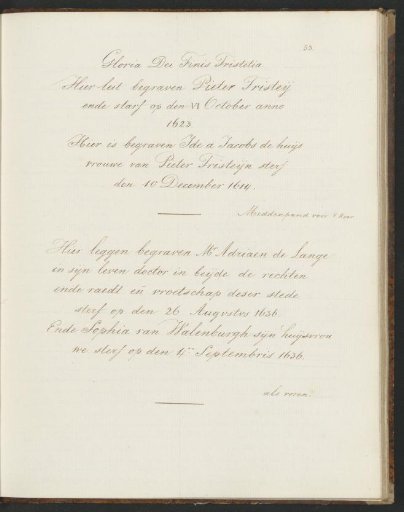 53.
Gloria Dei Finis Tristitia
Hier leit begraven Pieter Tristeÿ
ende starf op den VI October anno
1623
Hier is begraven Ide a Jacobs de huijs
vrouwe van Pieter Tristeÿn sterf
den 10 December 1614.
Middenpand voor 't Koor
Hier leggen begraven Mr Adriaen de Lange
in syn leven doctor in beÿde de rechten
ende raedt en vroetschap deser stede
sterf op den 26 Augustus 1636
Ende Sophia van Walenburgh sÿn huijsvrou
we sterf op den Septembris 1636.
als voren